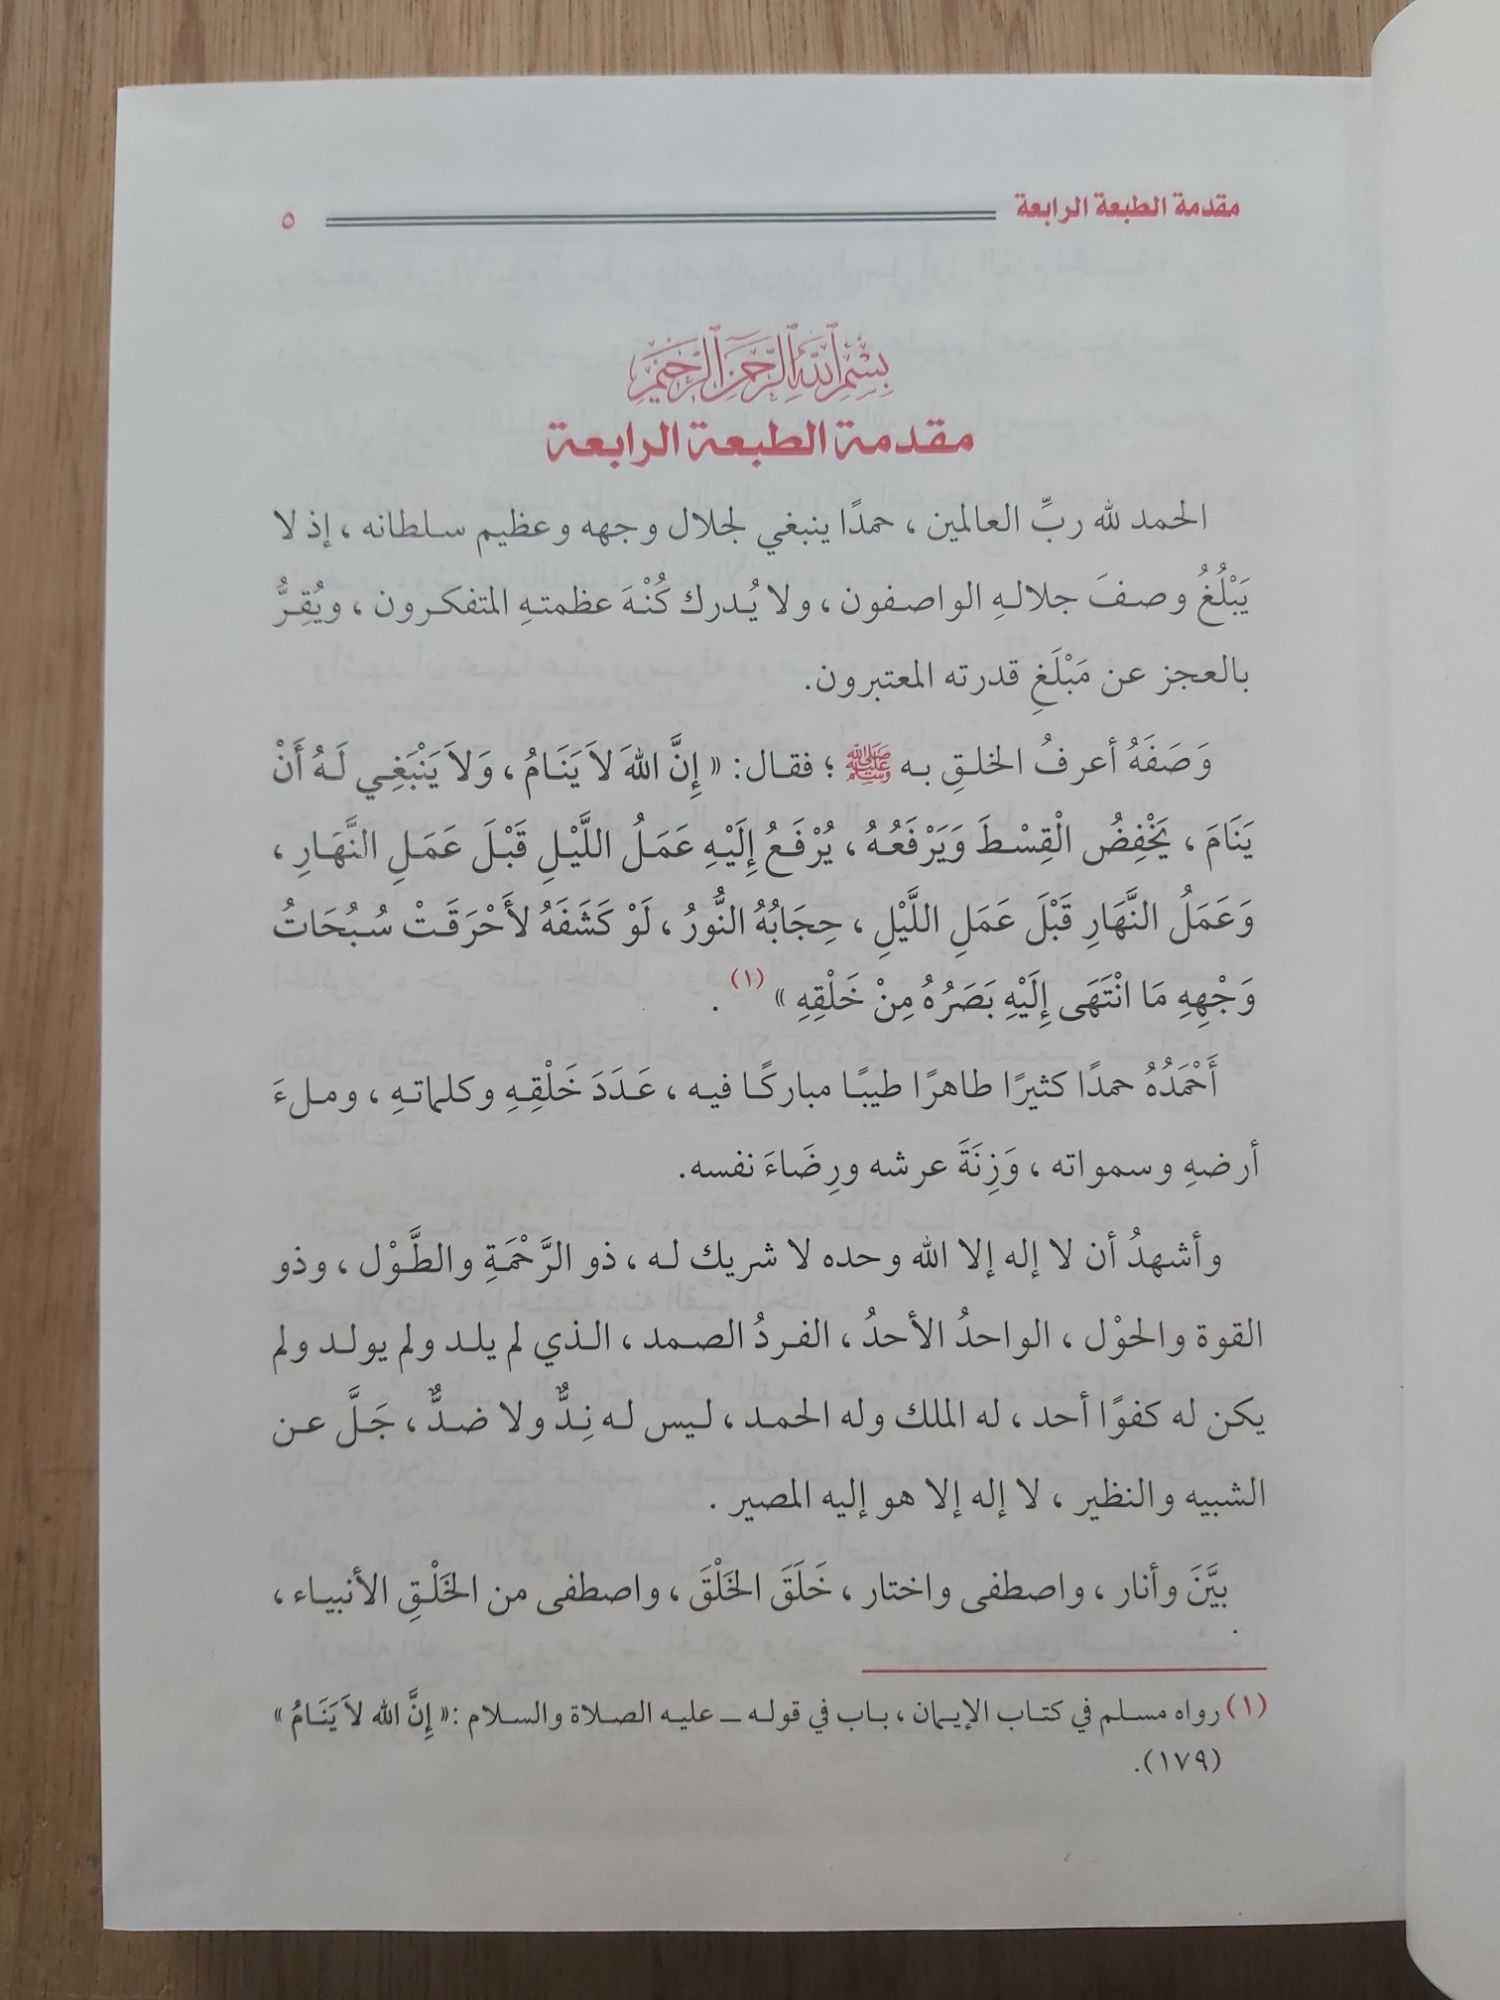 مقدمة الطبعة الرابعة ٥
بِسْمِ اللَّهِ الرَّحْمَنِ الرَّحِيمِ
مقدمة الطبعة الرابعة
الحمد لله ربِّ العالمين ، حمدًا ينبغي لجلال وجهه وعظيم سلطانه ، إذ لا
يَبْلُغُ وصفَ جلالهِ الواصفون ، ولا يُدرك كُنْهَ عظمتهِ المتفكرون ، ويُقِرُّ
بالعجز عن مَبْلَغِ قدرته المعتبرون.
وَصَفَهُ أعرفُ الخلقِ به ﷺ ؛ فقال: « إِنَّ اللهَ لاَ يَنَامُ ، وَلاَ يَنْبَغِي لَهُ أَنْ
يَنَامَ ، يَخْفِضُ الْقِسْطَ وَيَرْفَعُهُ ، يُرْفَعُ إِلَيْهِ عَمَلُ اللَّيْلِ قَبْلَ عَمَلِ النَّهَارِ ،
وَعَمَلُ النَّهَارِ قَبْلَ عَمَلِ اللَّيْلِ ، حِجَابُهُ النُّورُ ، لَوْ كَشَفَهُ لأَحْرَقَتْ سُبُحَاتُ
وَجْهِهِ مَا انْتَهَى إِلَيْهِ بَصَرُهُ مِنْ خَلْقِهِ » (١) .
أَحْمَدُهُ حمدًا كثيرًا طاهرًا طيبًا مباركًا فيه ، عَدَدَ خَلْقِهِ وكلماتهِ ، وملءَ
أرضهِ وسمواته ، وَزِنَةَ عرشه ورِضَاءَ نفسه.
وأشهدُ أن لا إله إلا الله وحده لا شريك له ، ذو الرَّحْمَةِ والطَّوْل ، وذو
القوة والحوْل ، الواحدُ الأحدُ ، الفردُ الصمد ، الذي لم يلد ولم يولد ولم
يكن له كفوًا أحد ، له الملك وله الحمد ، ليس له نِدٌّ ولا ضدٌّ ، جَلَّ عن
الشبيه والنظير ، لا إله إلا هو إليه المصير .
بيَّنَ وأنار ، واصطفى واختار ، خَلَقَ الخَلْقَ ، واصطفى من الخَلْقِ الأنبياء ،
(١) رواه مسلم في كتاب الإيمان ، باب في قوله ــ عليه الصلاة والسلام : « إِنَّ الله لاَ يَنَامُ »
(١٧٩).